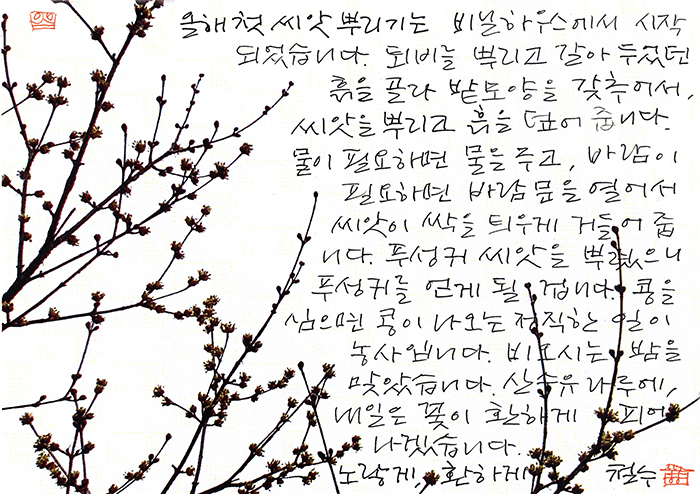 올해 첫 씨앗 뿌리기는 비닐하우스에서 시작
되었습니다. 퇴비를 뿌리고 갈아 두었던
흙을 골라 밭모양을 갖추어서,
씨앗을 뿌리고 흙을 덮어 줍니다.
물이 필요하면 물을 주고, 바람이
필요하면 바람문을 열어서
씨앗이 싹을 틔우게 거들어 줍
니다. 푸성귀 씨앗을 뿌렸으니
푸성귀를 얻게 될 겁니다. 콩을
심으면 콩이 나오는 정직한 일이
농사입니다. 비오시는 밤을
맞았습니다. 산수유 나무에,
내일은 꽃이 환하게 피어
나겠습니다.
노랗게, 환하게 철수